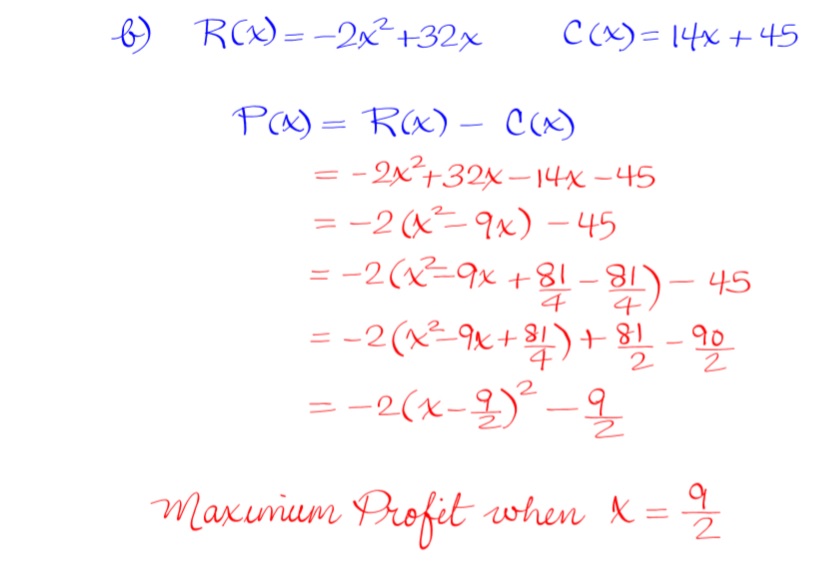 b) R(x) = -2x² + 32x C(x) = 14x + 45
P(x) = R(x) - C(x)
= -2x² + 32x - 14x - 45
= -2(x² - 9x) - 45
= -2(x² - 9x + 81/4 - 81/4) - 45
= -2(x² - 9x + 81/4) + 81/2 - 90/2
= -2(x - 9/2)² - 9/2
Maximum Profit when x = 9/2